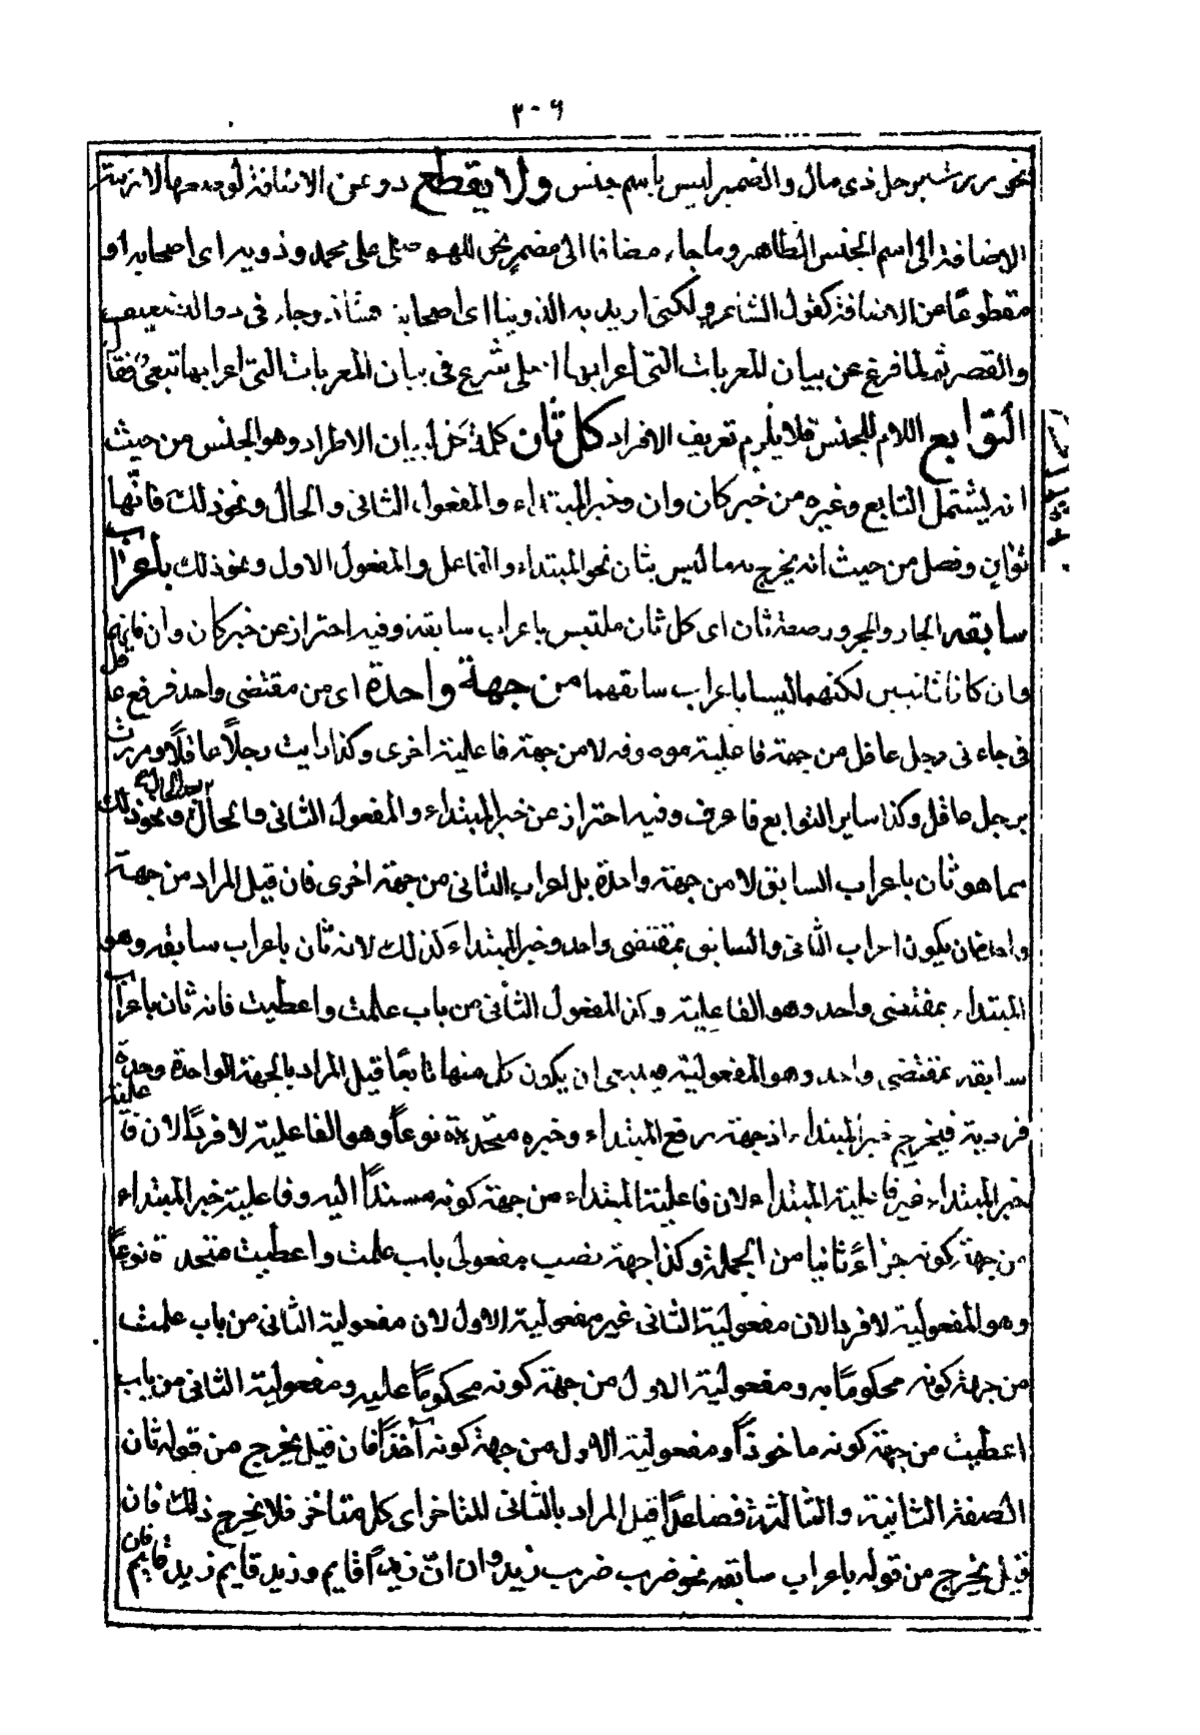 ٣٠٦
نحو مررت برجل ذى مال والضمير ليس باسم جنس ولا يقطع ذو عن الاضافة لوجه
الاضافة الى اسم الجنس الظاهر وما جاء مضافا الى مضمر نحو اللهم صلى على محمد وذويه اى اصحابه او
مقطوعا من الاضافة كقول الشاعر ولكنى اريد به الذوينا اى اصحابه فشاذ وجاء فى ذو
والقصر ثم لما فرغ عن بيان المعربات التى اعرابها اصلى شرع فى بيان المعربات التى اعرابها تبعى فقال
التوابع اللام للجنس فلا يلزم تعريف الافراد كل ثان كلمة كل لبيان الاطراد وهو الجنس من حيث
انه يشتمل التابع وغيره من خبر كان وان وخبر المبتداء والمفعول الثانى والحال ونحو ذلك فانها
ثوان وفصل من حيث انه يخرج به ما ليس بثان نحو المبتداء والفاعل والمفعول الاول ونحو ذلك باعراب
سابقه الجار والمجرور صفة ثان اى كل ثان ملتبس باعراب سابقه وفيه احتراز عن خبر كان وان فانهما
وان كانا ثانيين لكنهما ليسا باعراب سابقهما من جهة واحدة اى من مقتضى واحد فرفع عاقل
فى جاءنى رجل عاقل من جهة فاعلية موصوفه لا من جهة فاعلية اخرى وكذا رايت رجلا عاقلا ومررت
برجل عاقل وكذا ساير التوابع فاعرف وفيه احتراز عن خبر المبتداء والمفعول الثانى والحال ونحو ذلك
مما هو ثان باعراب السابق لا من جهة واحدة بل اعراب الثانى من جهة اخرى فان قيل المراد من جهة
واحدة ان يكون اعراب الثانى والسابق بمقتضى واحد وخبر المبتداء كذلك لانه ثان باعراب سابقه وهو
المبتداء بمقتضى واحد وهو الفاعلية وكذا المفعول الثانى من باب علمت واعطيت فانه ثان باعراب
سابقه بمقتضى واحد وهو المفعولية فينبغى ان يكون كل منهما تابعا قيل المراد بالجهة الواحدة وحدة
فردية فيخرج خبر المبتداء اذ جهة رفع المبتداء وخبره متحدة نوعا وهو الفاعلية لا فردا لان فاعلية
خبر المبتداء غير فاعلية المبتداء لان فاعلية المبتداء من جهة كونه مسندا اليه وفاعلية خبر المبتداء
من جهة كونه جزاء ثانيا من الجملة وكذا جهة نصب مفعولى باب علمت واعطيت متحدة نوعا
وهو المفعولية لا فردا لان مفعولية الثانى غير مفعولية الاول لان مفعولية الثانى من باب علمت
من جهة كونه محكوما به ومفعولية الاول من جهة كونه محكوما عليه ومفعولية الثانى من باب
اعطيت من جهة كونه ماخوذا ومفعولية الاول من جهة كونه آخذا فان قيل يخرج من قوله ثان
الصفة الثانية والثالثة فصاعدا قيل المراد بالثانى المتاخر اى كل متاخر فلا يخرج ذلك فان
قيل يخرج من قوله باعراب سابقه نحو ضرب ضرب زيد وان ان زيدا قايم وزيد قايم زيد قايم فان